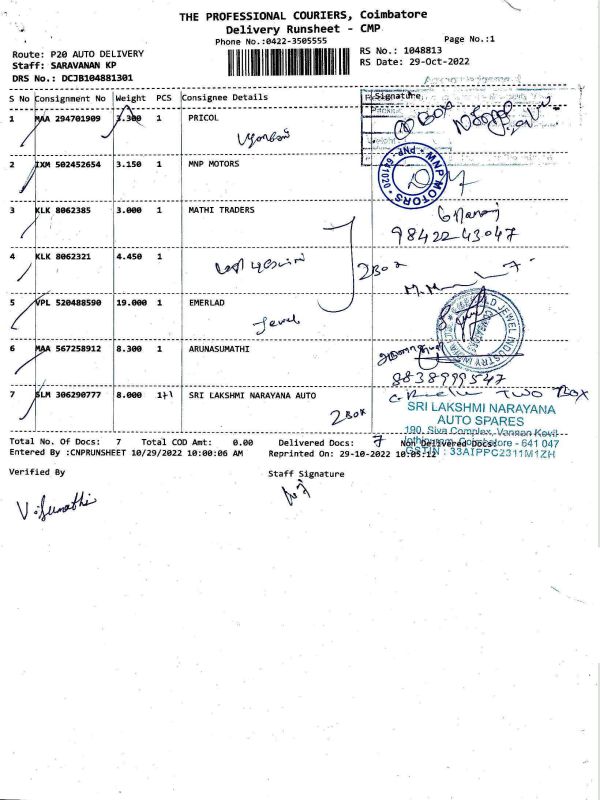 THE PROFESSIONAL COURIERS, Coimbatore
Delivery Runsheet - CMP
Phone No.:0422-3505555
Page No.:1
Route: P20 AUTO DELIVERY
RS No.: 1048813
Staff: SARAVANAN KP
RS Date: 29-Oct-2022
DRS No.: DCJB104881301
S No Consignment No Weight PCS Consignee Details Signature
1 MAA 294701909 3.300 1 PRICOL
BOX
2 IXM 502452654 3.150 1 MNP MOTORS
MNP MOTORS * PNP - 641020 *
3 KLK 8062385 3.000 1 MATHI TRADERS
98422 43047
4 KLK 8062321 4.450 1
2 Box
5 VPL 520488590 19.000 1 EMERLAD
Jewel
6 MAA 567258912 8.300 1 ARUNASUMATHI
8838999547
7 SLM 306290777 8.000 1+1 SRI LAKSHMI NARAYANA AUTO
2 Box
TWO BOX
SRI LAKSHMI NARAYANA
AUTO SPARES
190, Siva Complex, Vannan Kovil
Coimbatore - 641 047
GSTIN : 33AIPPC2311M1ZH
Total No. Of Docs: 7 Total COD Amt: 0.00 Delivered Docs: 7 Non Delivered Docs:
Entered By :CNPRUNSHEET 10/29/2022 10:00:06 AM Reprinted On: 29-10-2022 10:05:12
Verified By Staff Signature